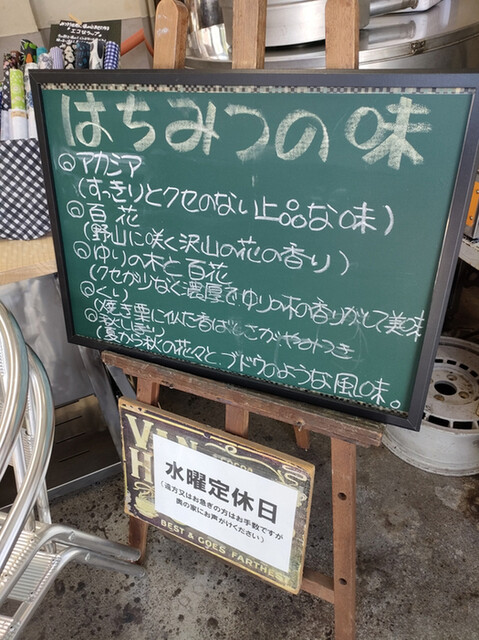 はちみつの味
アカシア
(すっきりとクセのない上品な味)
百花
(野山に咲く沢山の花の香り)
ゆりの木と百花
(クセが少なく濃厚でゆりの木の香りがして美味
くり
(焼き栗に似た香ばしさがやみつき
(夏から秋の花々とブドウのような風味。
水曜定休日
(遠方又はお急ぎの方はお手数ですが
奥の家にお声がけください)
BEST & GOES FARTHEST